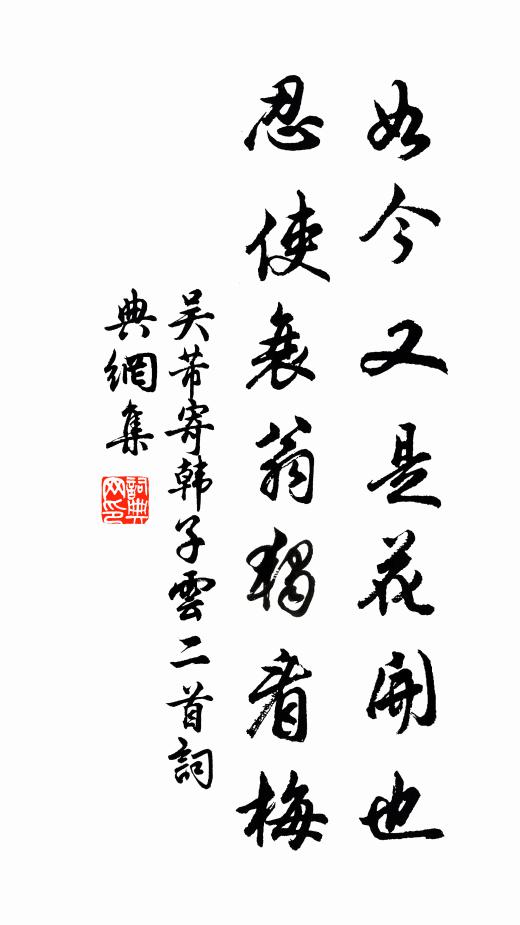 如今又是花開也
忍使衰翁獨看梅
吴芾寄韩子雲二首詞
典網集
詞典网印